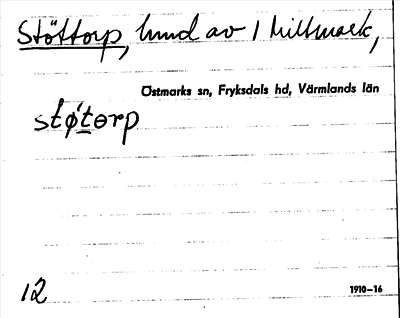 Stöttorp, hmd av 1 Mittmark,
Östmarks sn, Fryksdals hd, Värmlands län
stø´tɵrp
12
1910–16